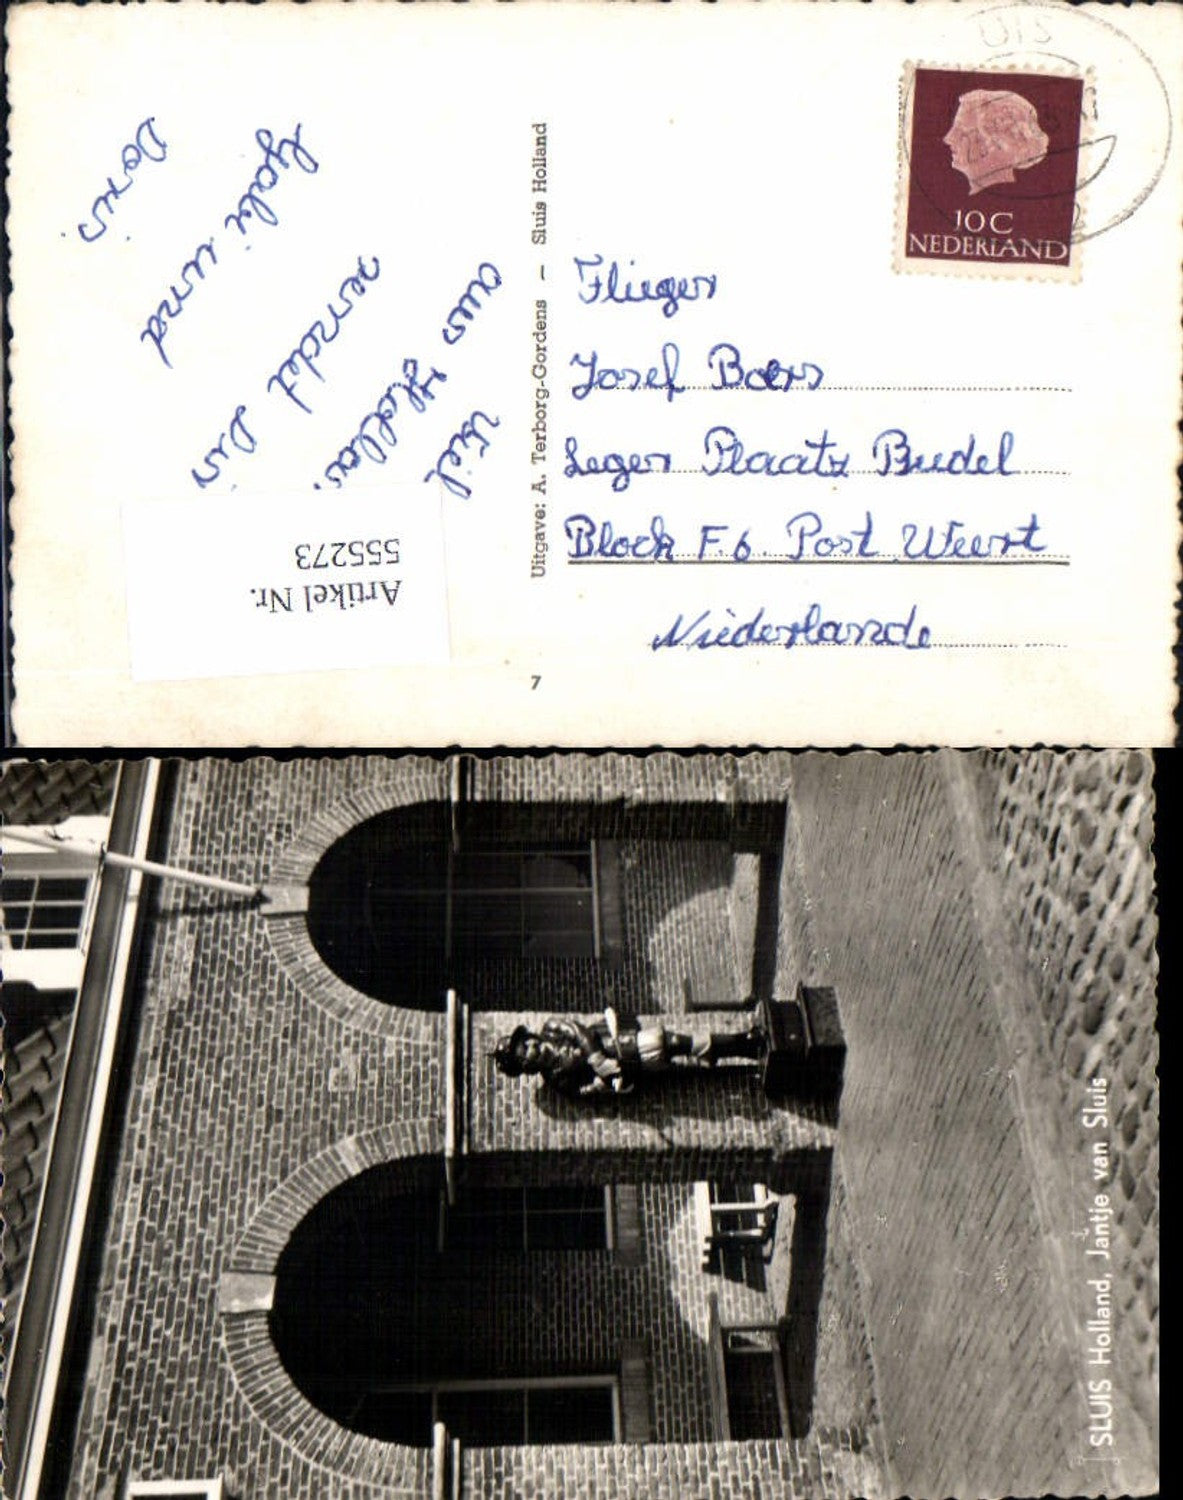 UIS
10 C
NEDERLAND
Viel
aus Holland
sendet Dir
Gabi und
Doris.
Artikel Nr.
555273
Uitgave: A. Terborg-Gordens – Sluis Holland
7
Flieger
Josef Boers
Leger Plaatz Budel
Block F.6. Post Weert
Niederlande
SLUIS Holland, Jantje van Sluis